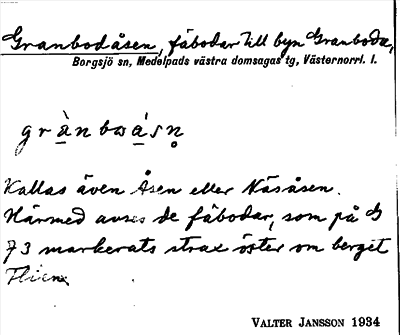 Granbodåsen, fäbodar till byn Granboda,
Borgsjö sn, Medelpads västra domsagas tg, Västernorrl. l.
grànboásn̥
Kallas även Åsen eller Näsåsen.
Härmed avses de fäbodar, som på G
73 markerats strax öster om berget
Flien
VALTER JANSSON 1934